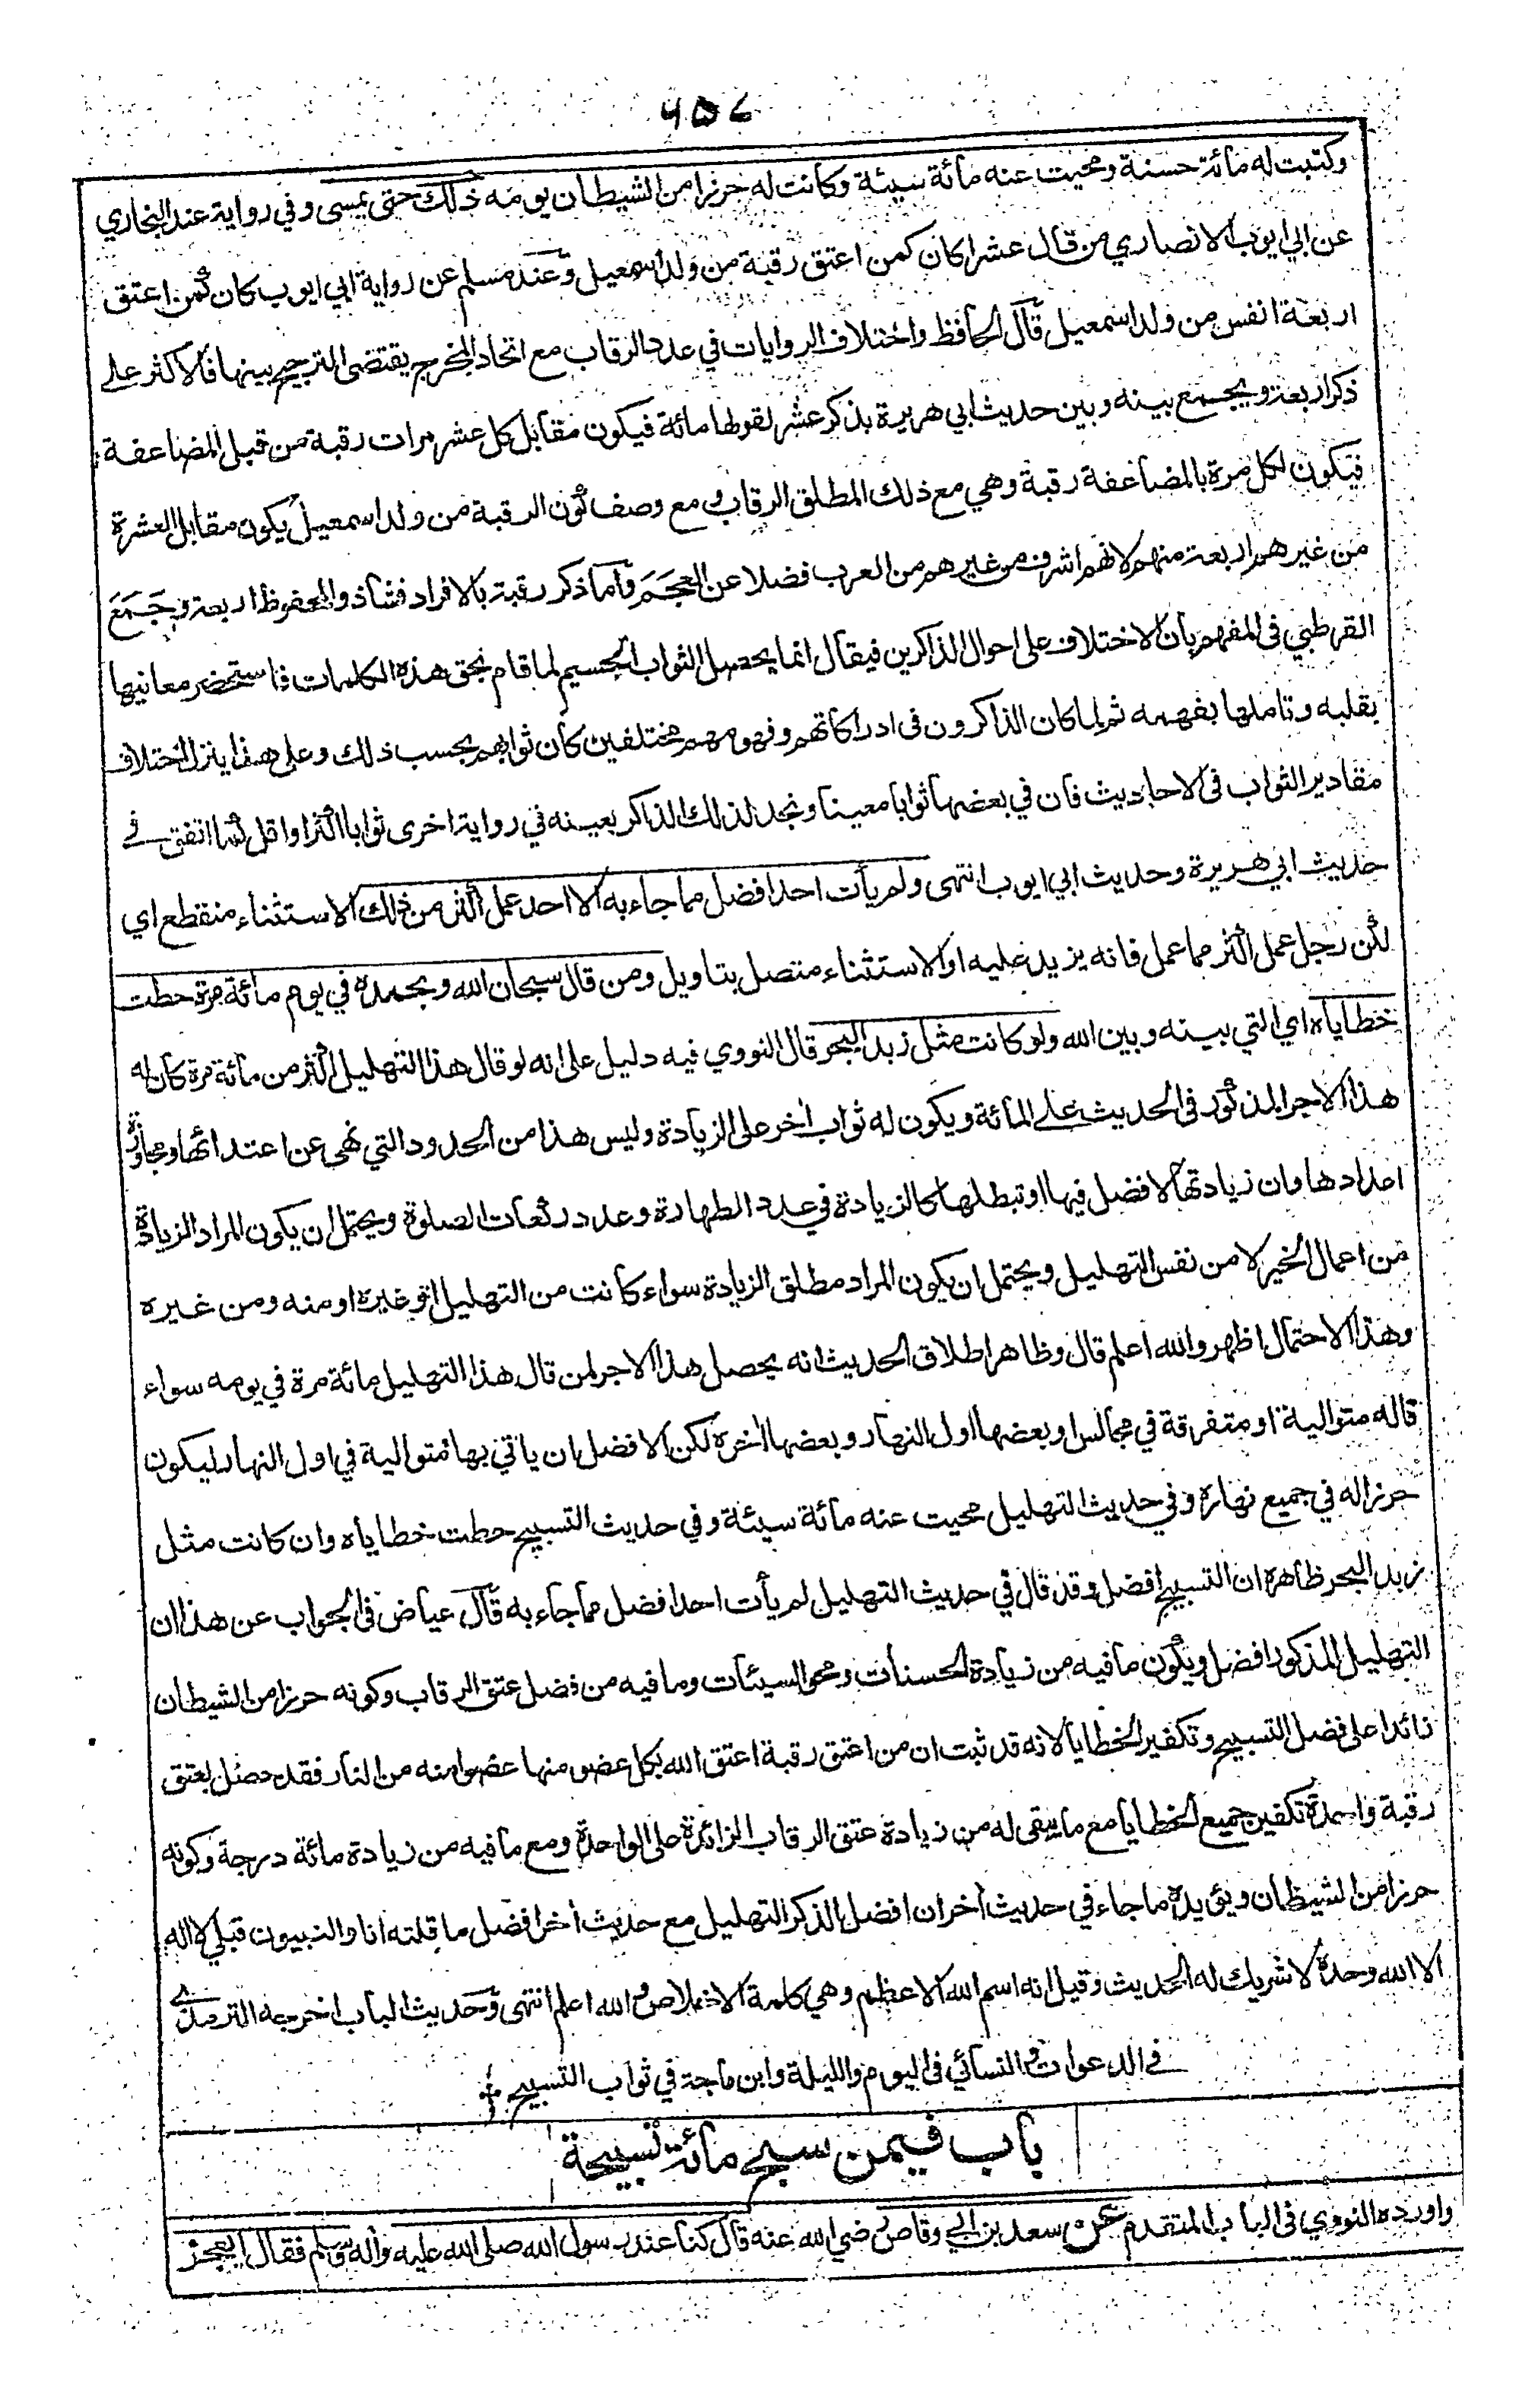 ٦٥٧
وكتبت له مائة حسنة ومحيت عنه مائة سيئة وكانت له حرزا من الشيطان يومه ذلك حتى يمسي وفي رواية عند البخاري
عن ابي ايوب الانصاري من قال عشرا كان كمن اعتق رقبة من ولد اسمعيل وعند مسلم عن رواية ابي ايوب كان كمن اعتق
اربعة انفس من ولد اسمعيل قال الحافظ واختلاف الروايات في عدد الرقاب مع اتحاد المخرج يقتضى الترجيح بينها فالاكثر على
ذكر اربعة ويجمع بينه وبين حديث ابي هريرة بذكر عشر لقولها مائة فيكون مقابل كل عشر مرات رقبة من قبل المضاعفة
فيكون لكل مرة بالمضاعفة رقبة وهي مع ذلك المطلق الرقاب ومع وصف كون الرقبة من ولد اسمعيل يكون مقابل العشرة
من غيرهم اربعة منهم لانهم اشرف من غيرهم من العرب فضلا عن العجم وآما ذكر رقبة بالافراد فشاذ والمحفوظ اربعة وجمع
القرطبي في المفهم بان الاختلاف على احوال الذاكرين فيقال انما يحصل الثواب الجسيم لما قام بحق هذه الكلمات فاستحضر معانيها
بقلبه وتاملها بفهمه ثم لما كان الذاكرون في ادراكاتهم وفهومهم مختلفين كان ثوابهم بحسب ذلك وعلى هذا ينزل اختلاف
مقادير الثواب في الاحاديث فان في بعضها ثوابا معينا ونجد لذلك الذاكر بعينه في رواية اخرى ثوابا اكثر او اقل كما اتفق في
حديث ابي هريرة وحديث ابي ايوب انتهى ولم يأت احد افضل مما جاء به الا احد عمل اكثر من ذلك الاستثناء منقطع اي
لكن رجل عمل اكثر مما عمل فانه يزيد عليه او الاستثناء متصل بتاويل ومن قال سبحان الله وبحمده في يوم مائة مرة حطت
خطاياه اي التي بينه وبين الله ولو كانت مثل زبد البحر قال النووي فيه دليل على انه لو قال هذا التهليل اكثر من مائة مرة كان له
هذا الاجر المذكور في الحديث على المائة ويكون له ثواب اخر على الزيادة وليس هذا من الحدود التي نهى عن اعتدائها ومجاوزة
اعدادها وان زيادتها لا فضل فيها او تبطلها كالزيادة في عدد الطهارة وعدد ركعات الصلوة ويحتمل ان يكون المراد الزيادة
من اعمال الخير لا من نفس التهليل ويحتمل ان يكون المراد مطلق الزيادة سواء كانت من التهليل او غيره او منه ومن غيره
وهذا الاحتمال اظهر والله اعلم قال وظاهر اطلاق الحديث انه يحصل هذا الاجر لمن قال هذا التهليل مائة مرة في يومه سواء
قاله متوالية او متفرقة في مجالس او بعضها اول النهار وبعضها اخره لكن الافضل ان ياتي بها متوالية في اول النهار ليكون
حرزا له في جميع نهاره وفي حديث التهليل محيت عنه مائة سيئة وفي حديث التسبيح حطت خطاياه وان كانت مثل
زبد البحر ظاهره ان التسبيح افضل وقد قال في حديث التهليل لم يأت احد افضل مما جاء به قال عياض في الجواب عن هذا ان
التهليل المذكور افضل ويكون ما فيه من زيادة الحسنات ومحو السيئات وما فيه من فضل عتق الرقاب وكونه حرزا من الشيطان
زائدا على فضل التسبيح وتكفير الخطايا لانه قد ثبت ان من اعتق رقبة اعتق الله بكل عضو منها عضوا منه من النار فقد حصل بعتق
رقبة واحدة تكفير جميع الخطايا مع ما يبقى له من زيادة عتق الرقاب الزائدة على الواحدة ومع ما فيه من زيادة مائة درجة وكونه
حرزا من الشيطان ويؤيده ما جاء في حديث اخر ان افضل الذكر التهليل مع حديث اخر افضل ما قلته انا والنبيون قبلي لا اله
الا الله وحده لا شريك له الحديث وقيل انه اسم الله الاعظم وهي كلمة الاخلاص والله اعلم انتهى وحديث الباب اخرجه الترمذي
في الدعوات والنسائي في اليوم والليلة وابن ماجة في ثواب التسبيح
باب فيمن سبح مائة تسبيحة
واورده النووي في الباب المتقدم عن سعد بن ابي وقاص رضي الله عنه قال كنا عند رسول الله صلى الله عليه واله وسلم فقال ايعجز